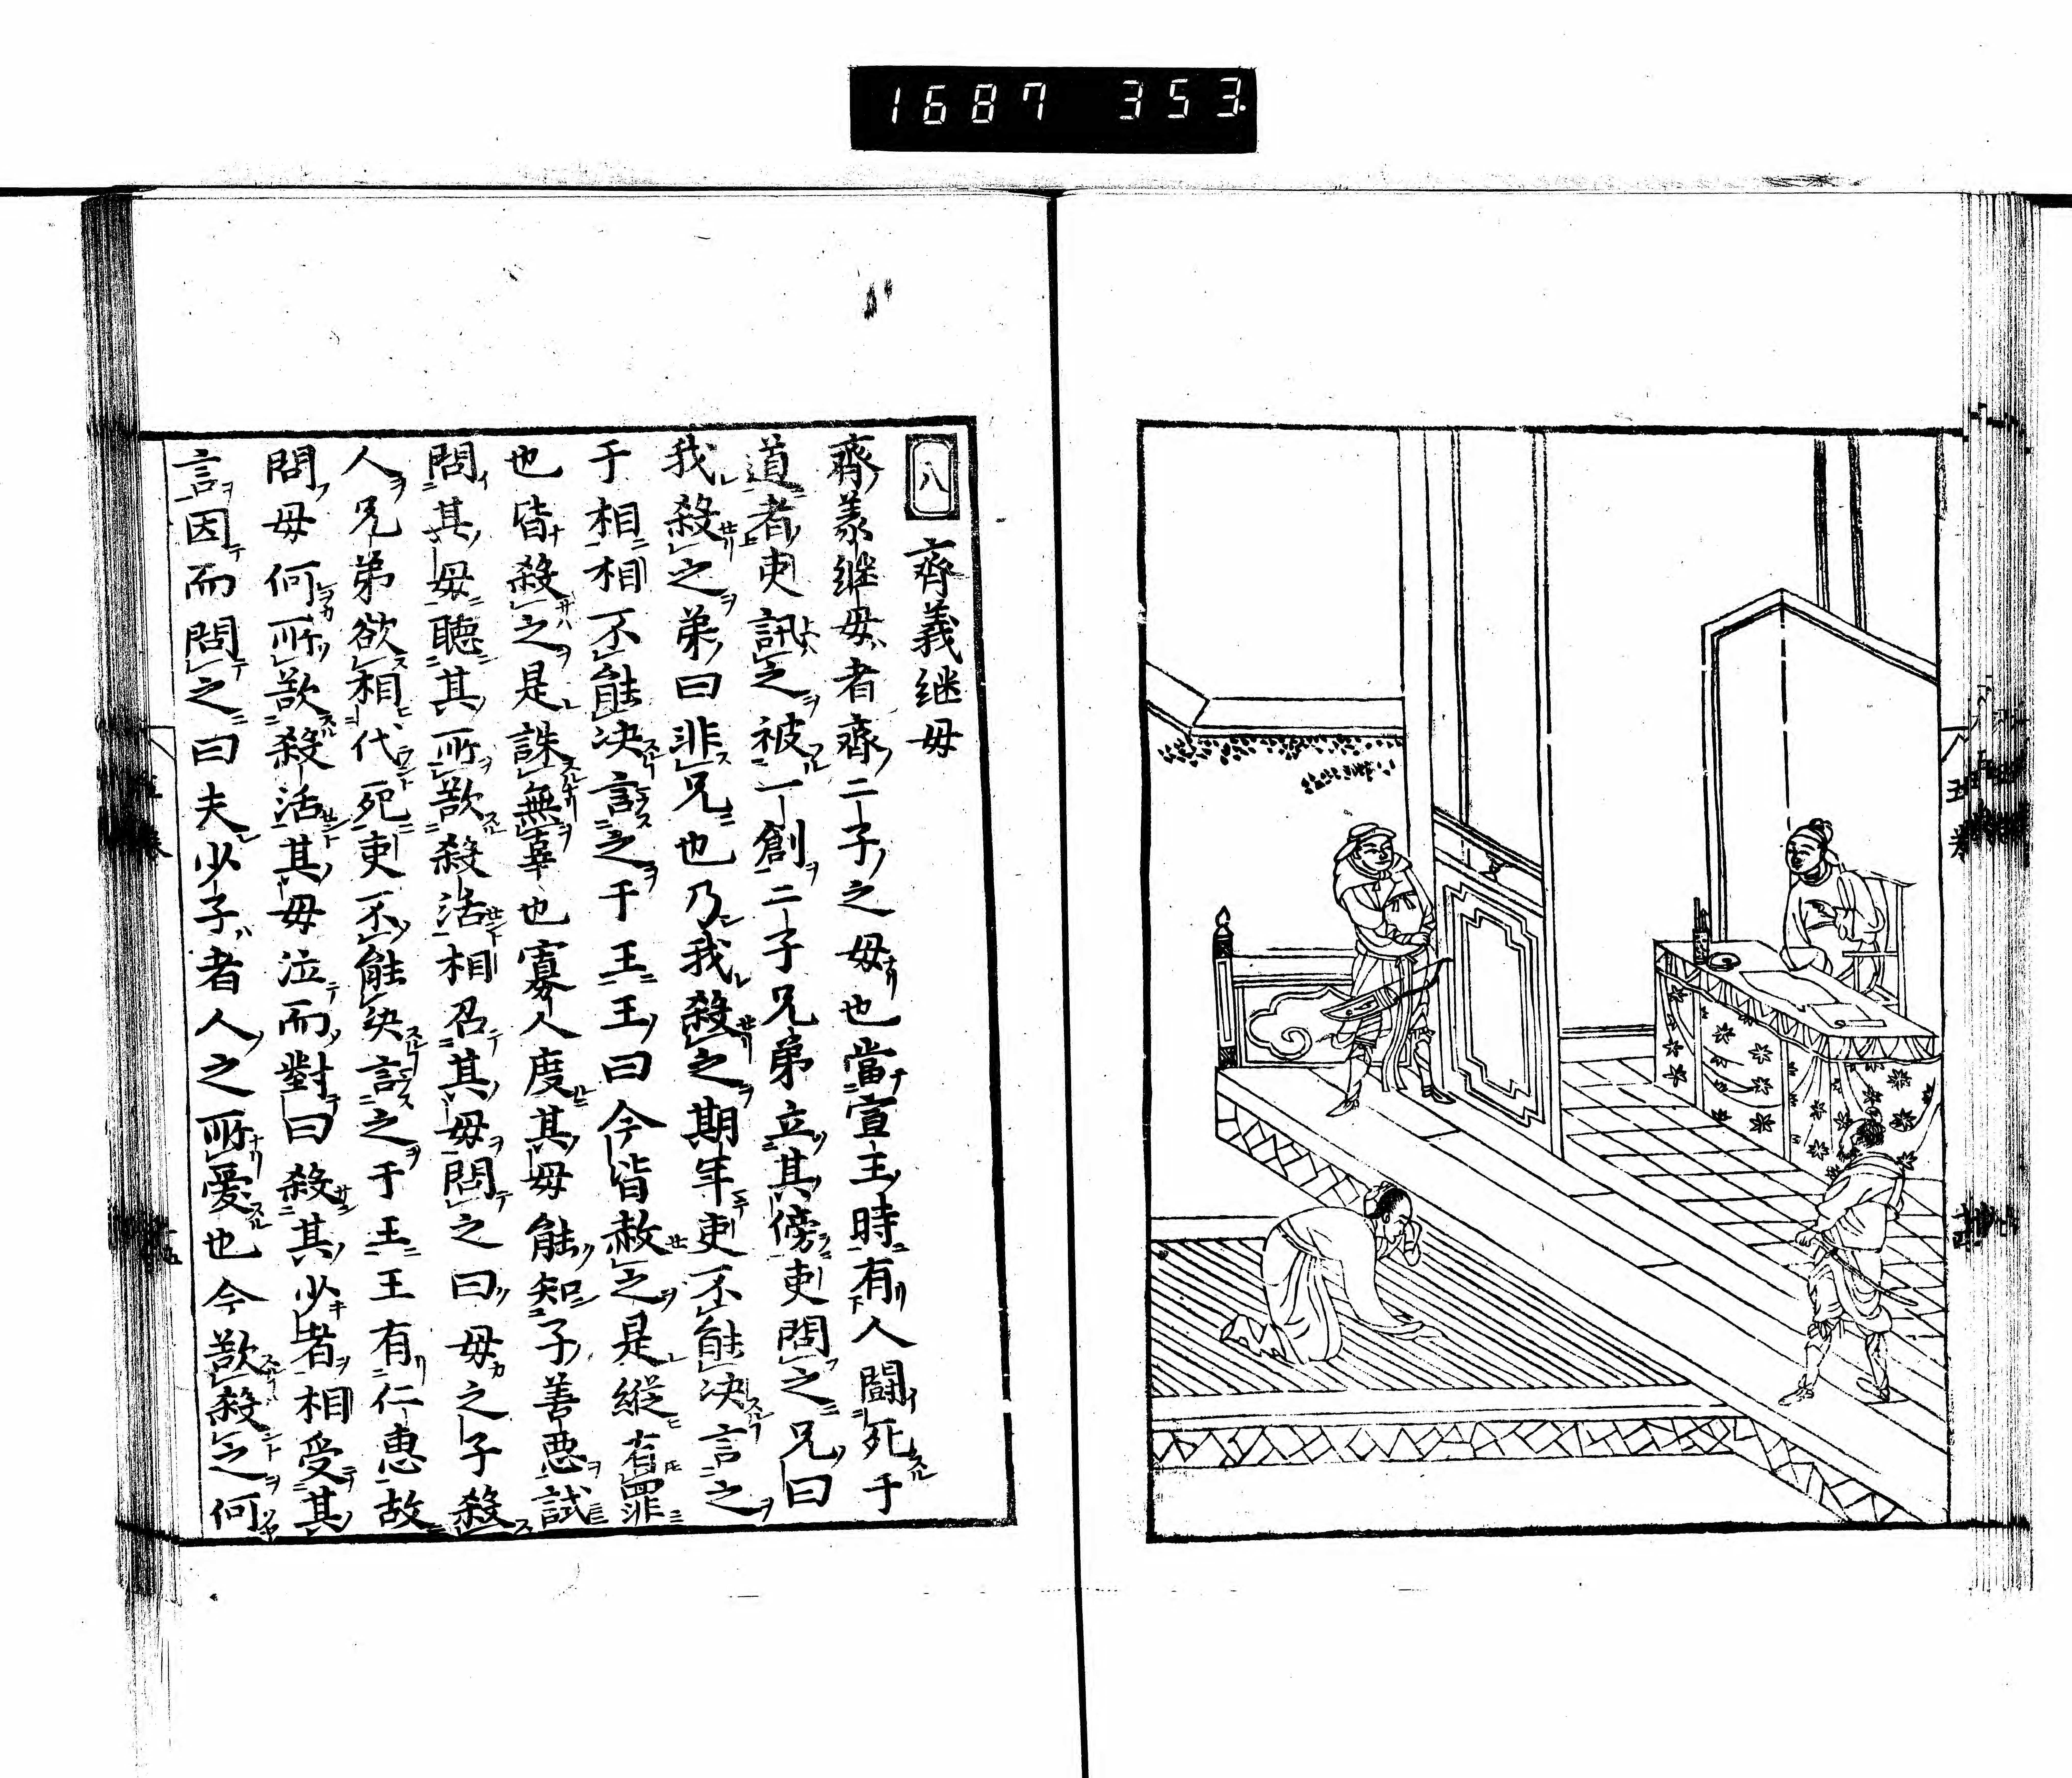 1687 353
八
齊義継母
齊義継母者齊二子之母也當宣王時有人闘死于
道者吏訊之被一創二子兄弟立其傍吏問之兄曰
我殺之弟曰非兄也乃我殺之期年吏不能决言之
于相相不能决言之于王王曰今皆赦之是縱有罪
也皆殺之是誅無辜也寡人度其母能知子善悪試
問其母聴其所欲殺活相召其母問之曰母之子殺
人兄弟欲相代死吏不能决言之于王王有仁恵故
問母何所欲殺活其母泣而對曰殺其少者相受其
言因而問之曰夫少子者人之所愛也今欲殺之何